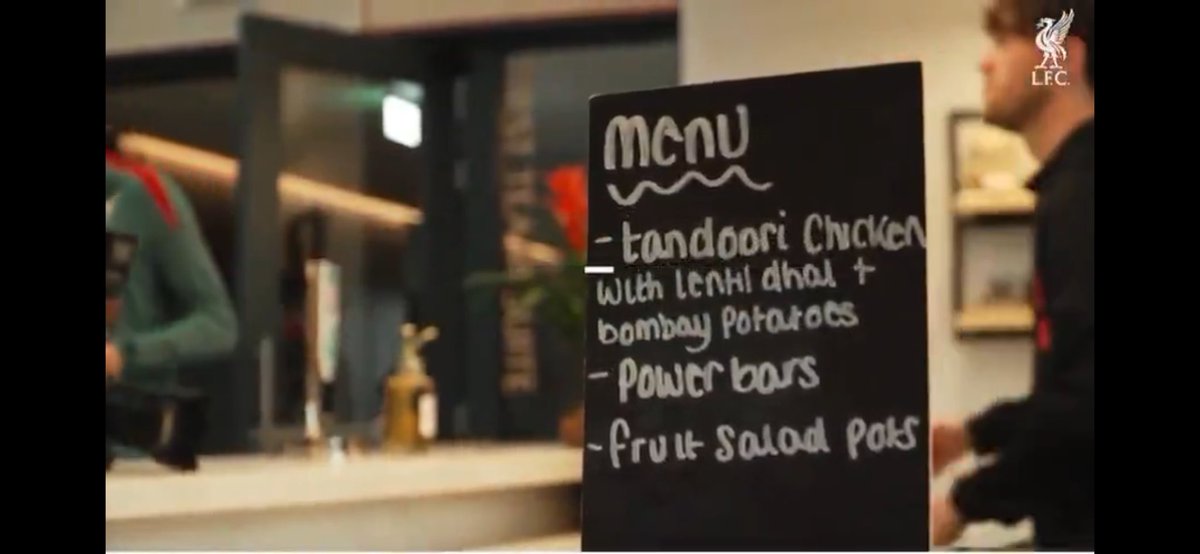 L.F.C.
menu
- tandoori Chicken
with lentil dhal +
bombay potatoes
- Power bars
- fruit salad pots